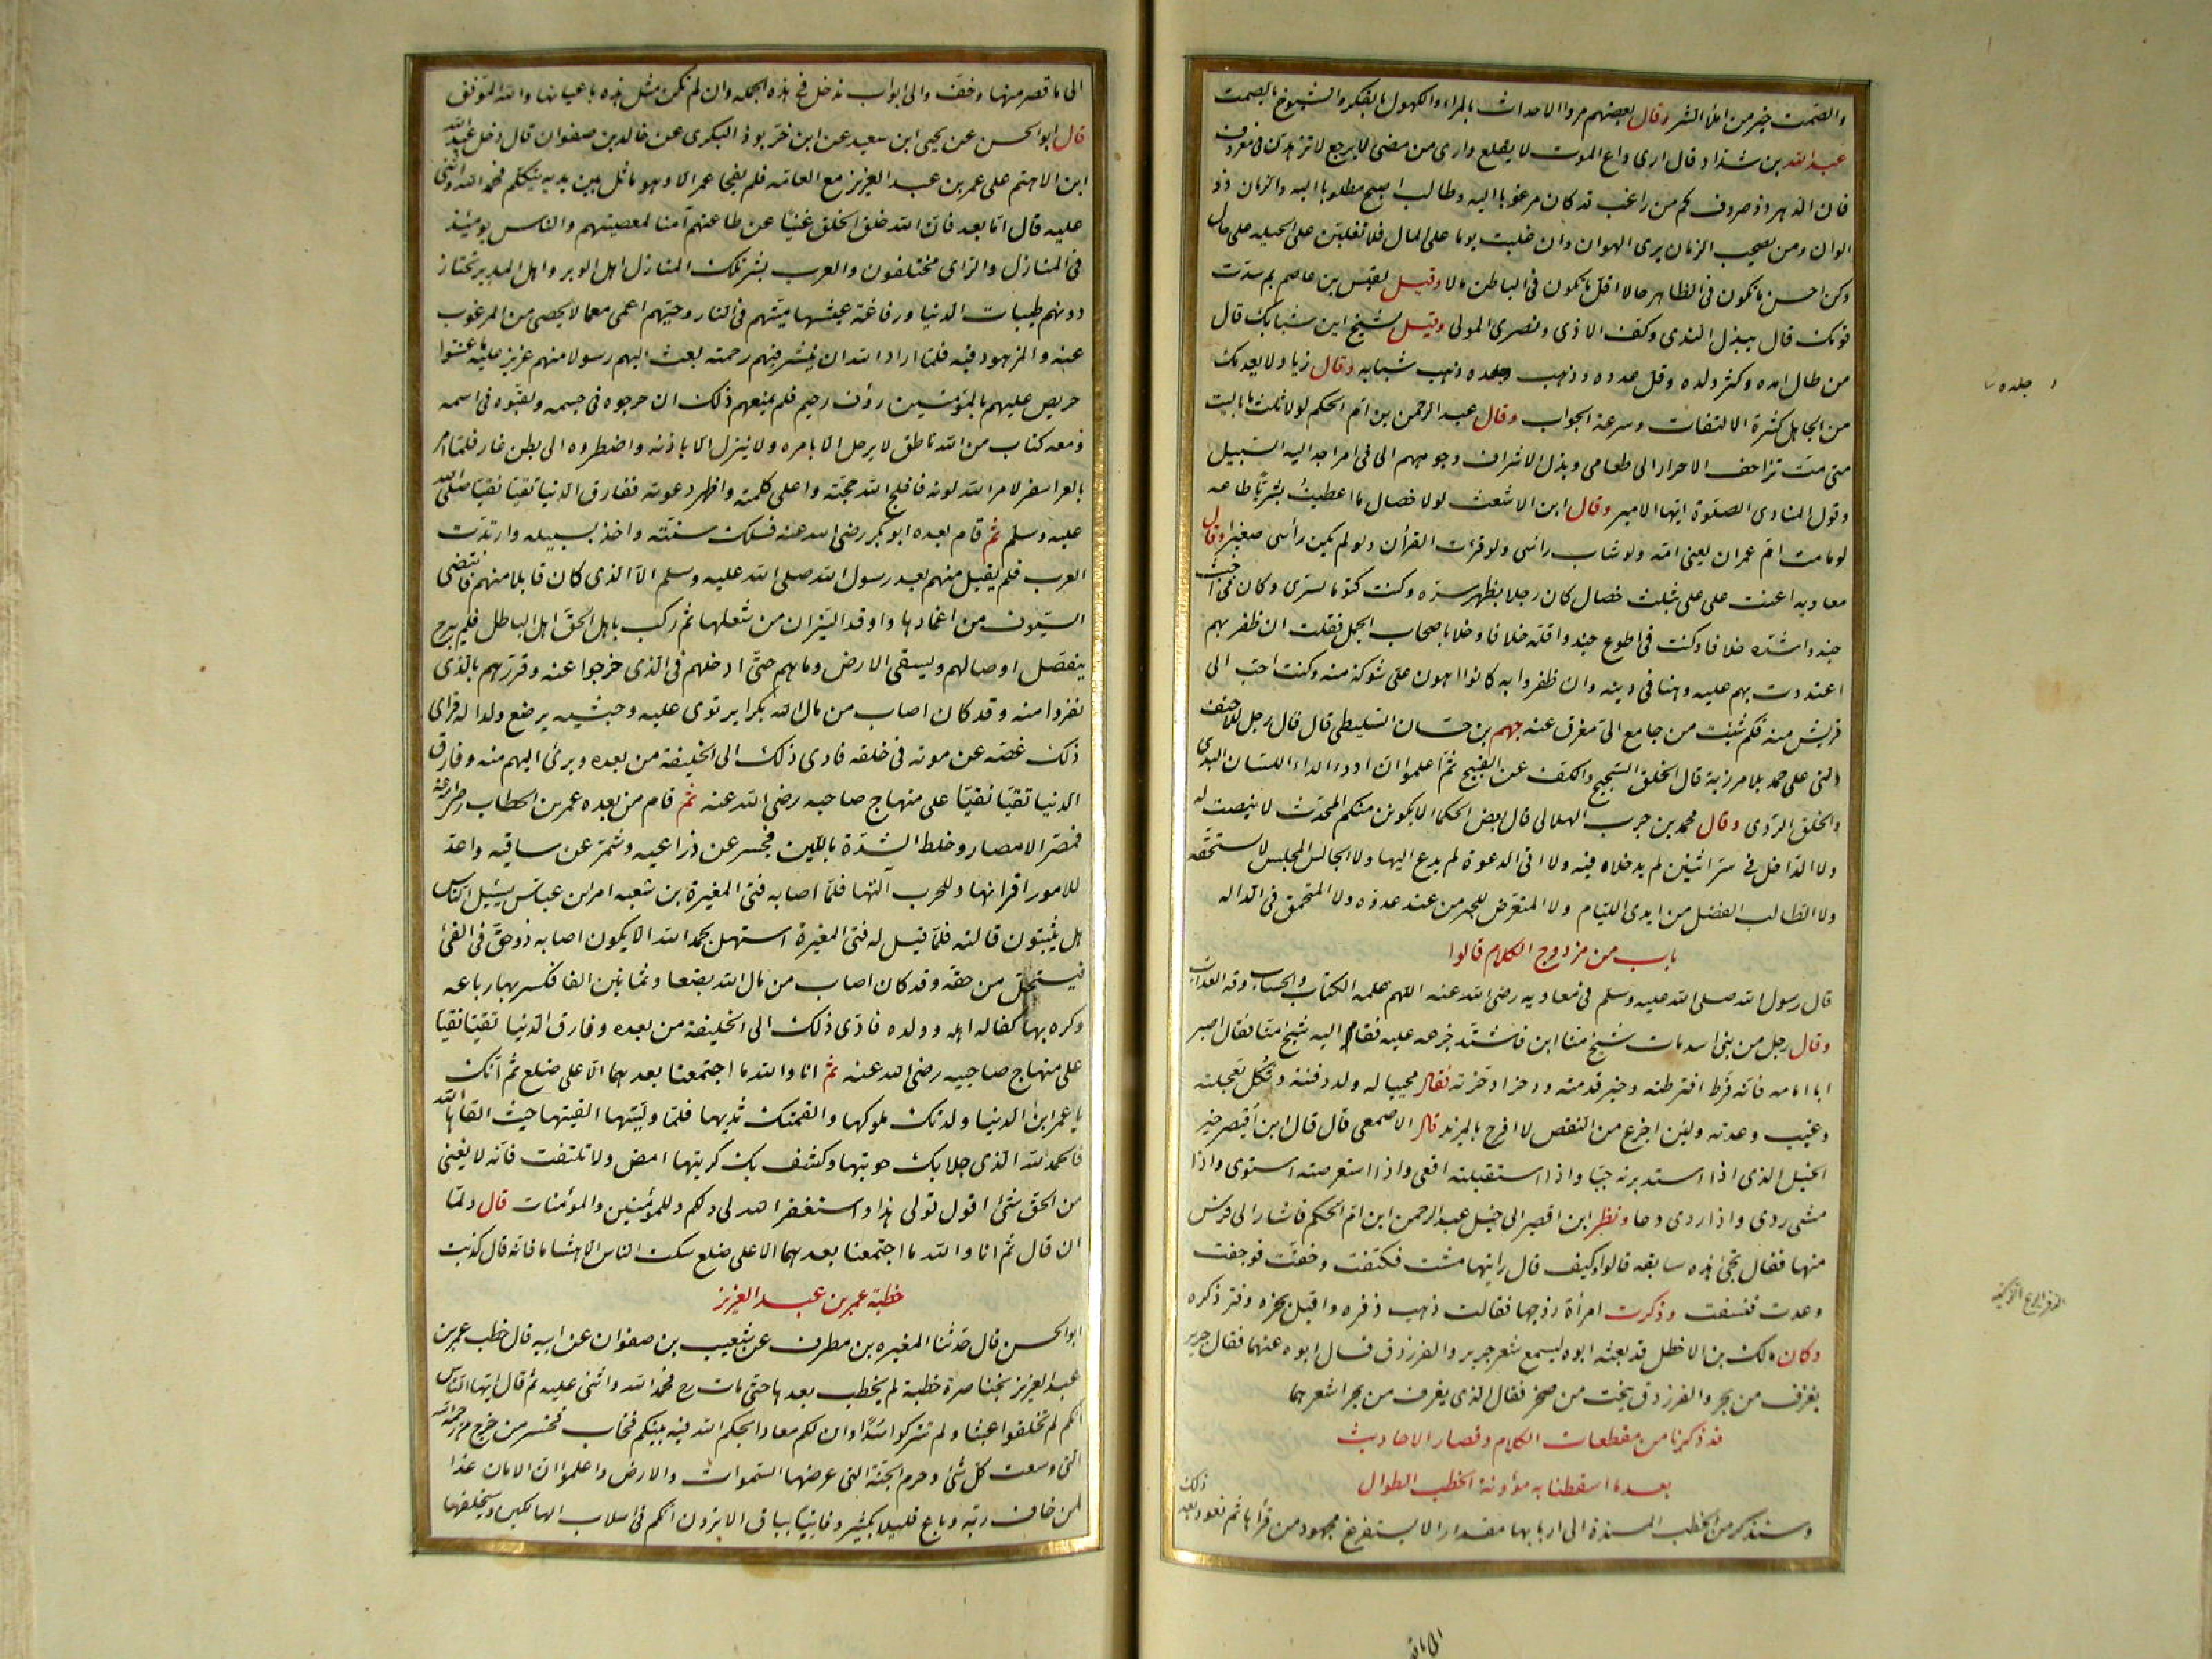 والصمت خير من املأ الشر وقال بعضهم مروا الاحداث بالمراء والكهول بالفكر والشيوخ بالصمت
عبد الله بن شداد قال ارى داع الموت لا يقلع وارى من مضى لا يرجع لا تزهدن فى معروف
فان الدهر ذو صروف كم من راغب قد كان مرغوبا اليه وطالب اصبح مطلوبا اليه والزمان ذو
الوان ومن يصحب الزمان يرى الهوان وان غلبت يوما على المال فلا تغلبن على الحيله على حال
وكن احسن ما تكون فى الظاهر حالا اقل ما تكون فى الباطن مالا وقيل لقيس بن عاصم بم سدت
قومك قال ببذل الندى وكف الاذى ونصرى المولى وقيل لشيخ اين شبابك قال
من طال امده وكثر ولده وقل عدده وذهب جلده ذهب شبابه وقال زياد لا يعدمك
من الجاهل كثرة الالتفات وسرعة الجواب وقال عبد الرحمن بن ام الحكم لولا ثلث ما باليت
متى مت تزاحف الاحرار الى طعامى وبذل الاشراف وجوههم الى فى امر اجد اليه السبيل
وقول المنادى الصلوة ايها الامير وقال ابن الاشعث لولا خصال ما اعطيت بشريا طاعه
لو مامت ام عمران يعنى امه ولو شاب راسى ولو قرئت القرأن ولو لم يكن رأسى صغيرا وقال
معاويه اعنت على على بثلث خصال كان رجلا يظهر سره وكنت كتوما لسرى وكان فى اخبث
جند واشده خلافا وكنت فى اطوع جند واقله خلافا وخلا باصحاب الجمل فقلت ان ظفر بهم
اعتددت بهم عليه وهنا فى دينه وان ظفروا به كانوا اهون على شوكة منه وكنت احب الى
قريش منه فكم شئت من جامع الى مفرق عنه جهم بن حسان السليطى قال قال رجل للاحنف
دلنى على حمد بلا مرزية قال الخلق السجيح والكف عن القبيح ثم اعلموا ان ادوء الداء اللسان البذى
والخلق الردى وقال محمد بن حرب الهلالى قال بعض الحكماء لا يكونن منكم المحدث لا ينصت له
ولا الداخل فى سر اثنين لم يدخلاه فيه ولا اتى الدعوة لم يدع اليها ولا الجالس المجلس لا يستحقه
ولا الطالب الفضل من ايدى الليام ولا المتعرض للخير من عند عدوه ولا المتحمق فى الداله
باب من مزدوج الكلام قالوا
قال رسول الله صلى الله عليه وسلم فى معاويه رضى الله عنه اللهم علمه الكتاب والحساب وقه العذاب
وقال رجل من بنى اسد مات شيخ منا ابن فاشتد جزعه عليه فقام اليه شيخ منا فقال اصبر
ابا امامه فانه فرط افترطته وخير قدمته وذخر ادخرته فقال مجيبا له ولد دفنته وثكل تعجلته
وغيب وعدته ولئن اجزع من النقص لا افرح بالمزيد قال الاصمعى قال قال ابن اقيصر خير
الخيل الذى اذا استدبرته جبا واذا استقبلته اقعى واذا استعرضته استوى واذا
مشى ردى واذا ردى دحا ونظر ابن اقيصر الى خيل عبد الرحمن ابن ام الحكم فاشار الى فرس
منها فقال تجئ هذه سابقه قالوا وكيف قال رايتها مشت فكتفت وخبت فوجفت
وعدت فنسفت وذكرت امرأة زوجها فقالت ذهب ذفره واقبل بخره وفتر ذكره
وكان مالك بن الاخطل قد بعثه ابوه ليسمع شعر جرير والفرزدق فسال ابوه عنهما فقال جرير
يغرف من بحر والفرزدق ينحت من صخر فقال الذى يغرف من بحر اشعرهما
قد ذكرنا من مقطعات الكلام وقصار الاحاديث
بعد ما اسقطنا به مؤونة الخطب الطوال
وسنذكر من الخطب المسندة الى اربابها مقدارا لا يستفرغ مجهود من قرأها ثم نعود بعد ذلك
الى ما
جلده
الى ما قصر منها وخف والى ابواب تدخل فى هذه الجمله وان لم تكن مثل هذه باعيانها والله الموفق
قال ابو الحسن عن يحيى ابن سعيد عن ابن خربوذ البكرى عن خالد بن صفوان قال دخل عبد الله
ابن الاهتم على عمر بن عبد العزيز مع العامه فلم يفجا عمر الا وهو ماثل بين يديه يتكلم فحمد الله واثنى
عليه قال اما بعد فان الله خلق الخلق غنيا عن طاعتهم آمنا لمعصيتهم والناس يومئذ
فى المنازل والراى مختلفون والعرب بشر تلك المنازل اهل الوبر واهل المدر تحتاز
دونهم طيبات الدنيا ورفاغة عيشها ميتهم فى النار وحيهم اعمى مع ما لا يحصى من المرغوب
عنه والمزهود فيه فلما اراد الله ان ينشر فيهم رحمته بعث اليهم رسولا منهم عزيز عليه ما عنتوا
حريص عليهم بالمؤمنين رؤف رحيم فلم يمنعهم ذلك ان جرحوه فى جسمه ولقبوه فى اسمه
ومعه كتاب من الله ناطق لا يرحل الا بامره ولا ينزل الا باذنه واضطروه الى بطن غار فلما امر
بالعزم اسفر لامر الله لونه فافلج الله حجته واعلى كلمته واظهر دعوته ففارق الدنيا تقيا نقيا صلى الله
عليه وسلم ثم قام بعده ابو بكر رضى الله عنه فسلك سنته واخذ بسبيله وارتدت
العرب فلم يقبل منهم بعد رسول الله صلى الله عليه وسلم الا الذى كان قابلا منهم فانتضى
السيوف من اغمادها واوقد النيران من شعلها ثم ركب باهل الحق اهل الباطل فلم يبرح
يفصل اوصالهم ويسقى الارض دماءهم حتى ادخلهم فى الذى خرجوا عنه وقررهم بالذى
نفروا منه وقد كان اصاب من مال الله بكرا يرتوى عليه وحبشيه يرضع ولدا له فراى
ذلك غصه عن موته فى حلقه فادى ذلك الى الخليفة من بعده وبرئ اليهم منه وفارق
الدنيا تقيا نقيا على منهاج صاحبه رضى الله عنه ثم قام من بعده عمر بن الخطاب رضى الله عنه
فمصر الامصار وخلط الشدة باللين فحسر عن ذراعيه وشمر عن ساقيه واعد
للامور اقرانها وللحرب آلتها فلما اصابه فتى المغيرة بن شعبه امر ابن عباس يسئل الناس
هل يثبتون قاتله فلما قيل له فتى المغيرة استهل بحمد الله الا يكون اصابه ذو حق فى الفئ
فيستحل من حقه وقد كان اصاب من مال الله بضعا وثمانين الفا فكسر بها رباعه
وكره بها كفالة اهله وولده فادى ذلك الى الخليفة من بعده وفارق الدنيا تقيا نقيا
على منهاج صاحبيه رضى الله عنه ثم انا والله ما اجتمعنا بعدهما الا على ضلع ثم انك
يا عمر ابن الدنيا ولدتك ملوكها والقمتك ثديها فلما وليتها القيتها حيث القاها الله
فالحمد لله الذى جلا بك حوبتها وكشف بك كربتها امض ولا تلتفت فانه لا يغنى
من الحق شئ اقول قولى هذا واستغفر الله لى ولكم وللمؤمنين والمؤمنات قال ولما
ان قال ثم انا والله ما اجتمعنا بعدهما الا على ضلع سكت الناس الا هشاما فانه قال كذبت
خطبة عمر بن عبد العزيز
ابو الحسن قال حدثنا المغيره بن مطرف عن شعيب بن صفوان عن ابيه قال خطب عمر بن
عبد العزيز بخناصرة خطبة لم يخطب بعدها حتى مات رح فحمد الله واثنى عليه ثم قال ايها الناس
انكم لم تخلقوا عبثا ولم تتركوا سدا وان لكم معادا يحكم الله فيه بينكم فخاب فخسر من خرج من رحمة الله
التى وسعت كل شئ وحرم الجنة التى عرضها السموات والارض واعلموا ان الامان غدا
لمن خاف ربه وباع قليلا بكثير وفانيا بباق الا ترون انكم فى اسلاب الهالكين وسيخلفها